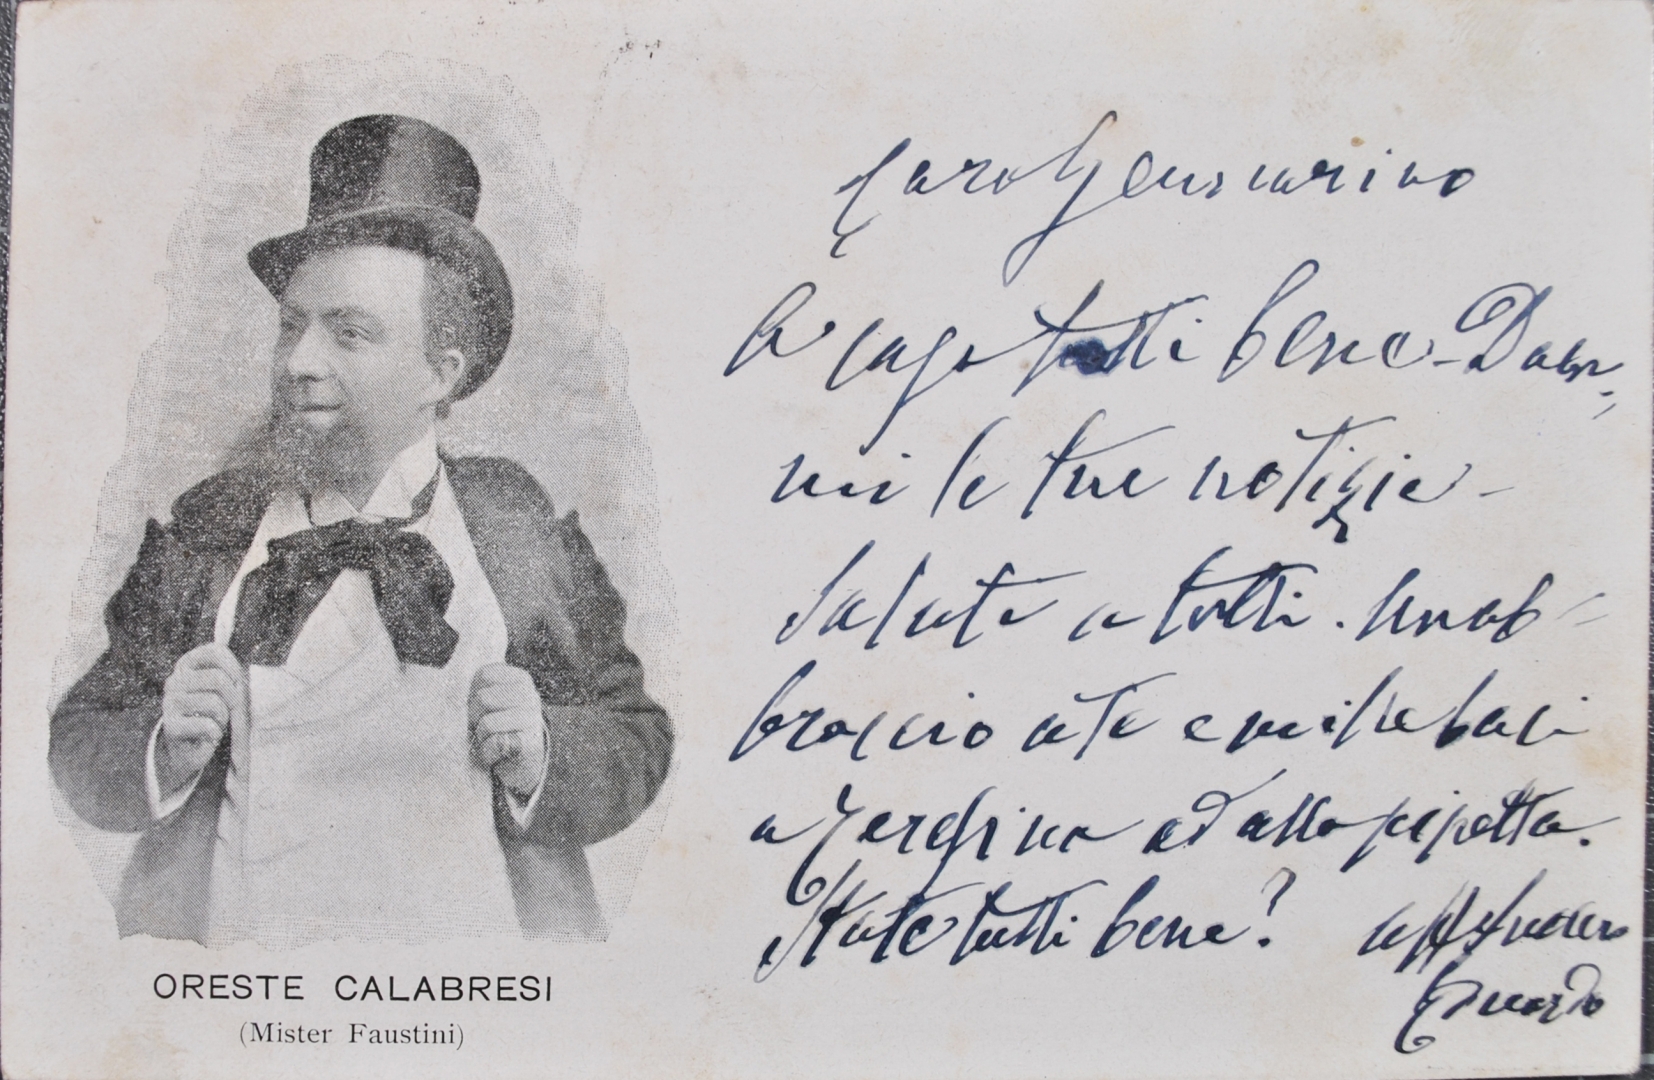 ORESTE CALABRESI
(Mister Faustini)
Caro Gennarino
A casa tutti bene - Dam
mi le tue notizie -
Saluta a tutti. Un ab=
braccio a te e mille baci
a ed alla pipetta.
State tutti bene? aff